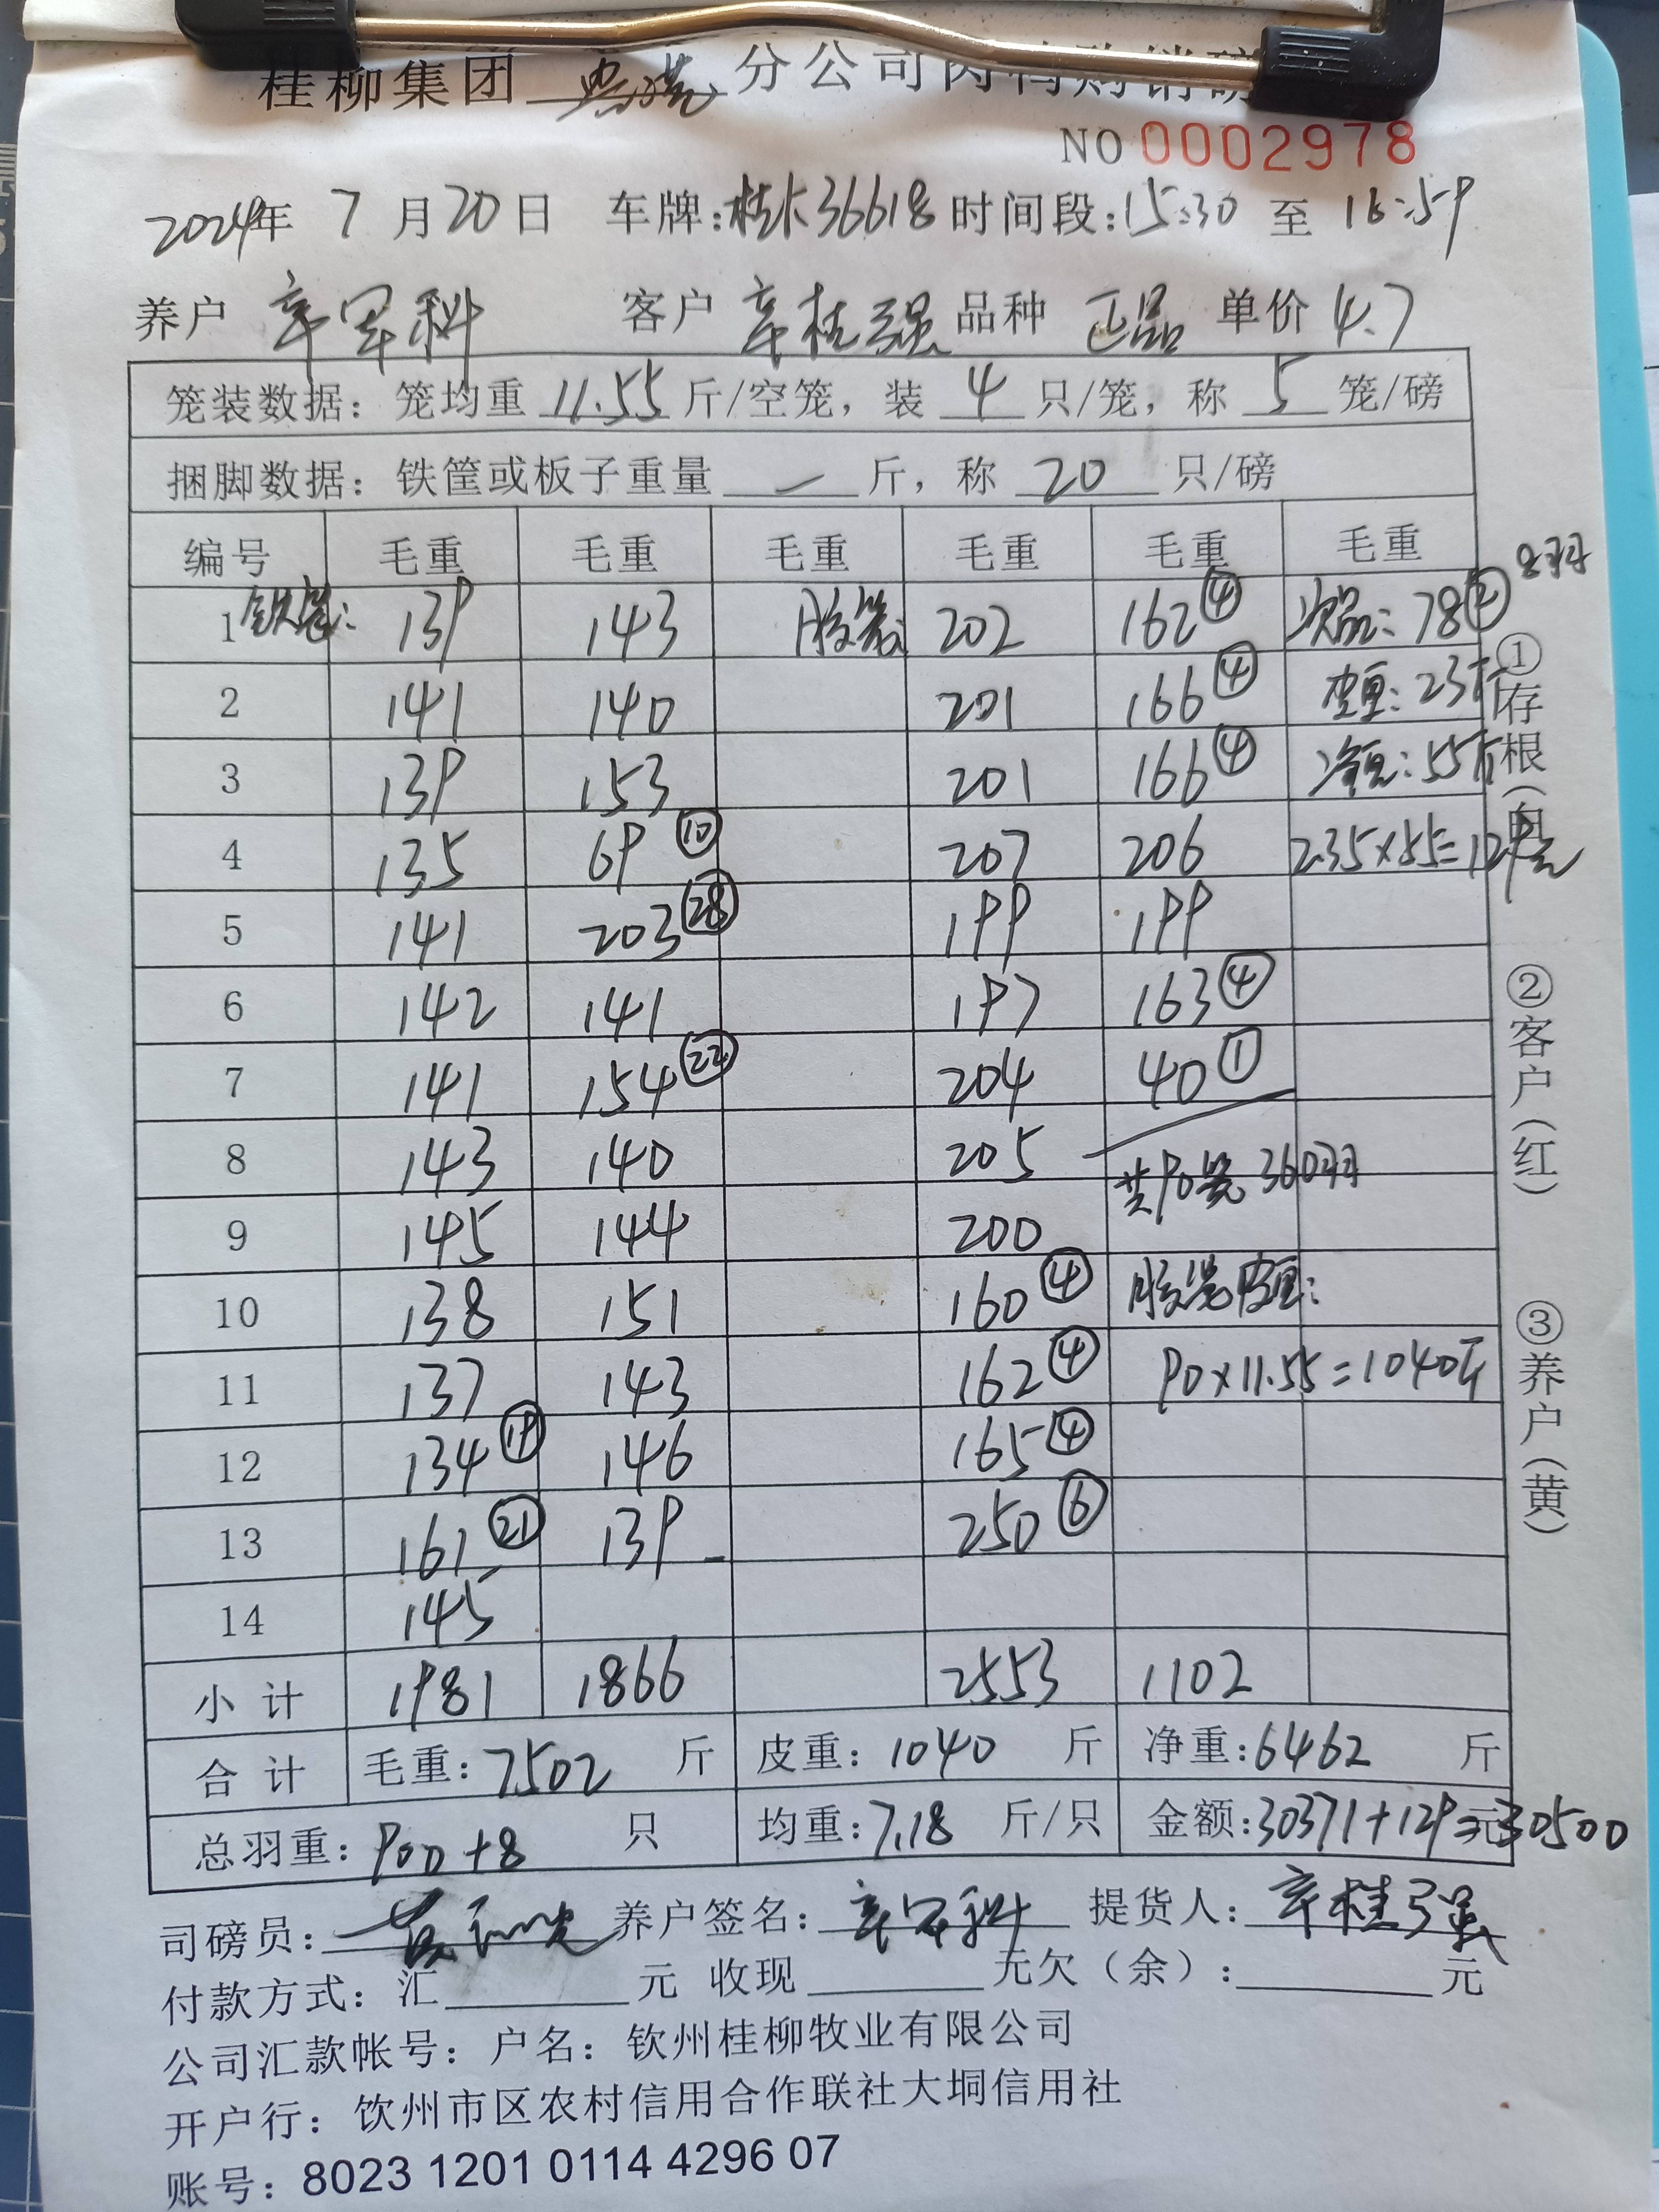 桂柳集团 分公司肉鸭购销磅
NO 0002978
2024年 7月20日 车牌:桂K36618 时间段:15:30 至 16:59
养户 辛军科 客户 辛桂强 品种 正品 单价 4.7
笼装数据: 笼均重 11.55 斤/空笼, 装 4 只/笼, 称 5 笼/磅
捆脚数据: 铁筐或板子重量 — 斤, 称 20 只/磅
编号 毛重 毛重 毛重 毛重 毛重 毛重
8羽
1 铁笼: 139 143 胶笼: 202 162④ 次品: 78②
2 141 140 201 166④ 皮重: 23斤
3 139 153 201 166④ 净重: 55斤
4 135 69⑩ 207 206 2.35×55=129元
5 141 203㉘ 199 199
6 142 141 197 163④
7 141 154㉒ 204 40①
8 143 140 205 共90笼 360羽
9 145 144 200
10 138 151 160④ 胶笼皮重:
11 137 143 162④ 90×11.55=1040斤
12 134⑲ 146 165④
13 161㉑ 139 250⑥
14 145
小计 1981 1866 2553 1102
合计 毛重: 7502 斤 皮重: 1040 斤 净重: 6462 斤
总羽重: 900+8 只 均重: 7.18 斤/只 金额: 30371+129=元30500
司磅员: 养户签名: 辛军科 提货人: 辛桂强
付款方式: 汇 元 收现 元欠(余): 元
公司汇款帐号: 户名: 钦州桂柳牧业有限公司
开户行: 钦州市区农村信用合作联社大垌信用社
账号: 8023 1201 0114 4296 07
①存根(白)
②客户(红)
③养户(黄)